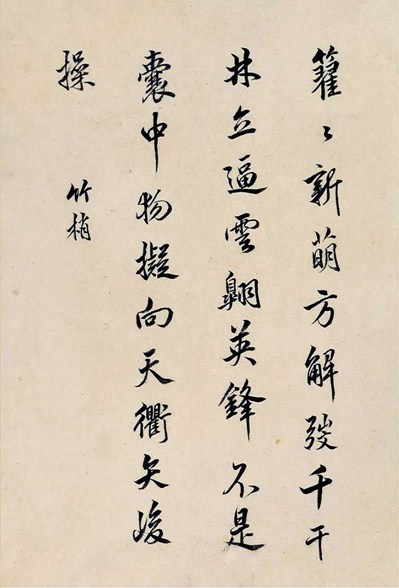 籊〻新萌方解發千干
林立逼雲翺英鋒不是
囊中物擬向天衢矢峻
操
竹梢